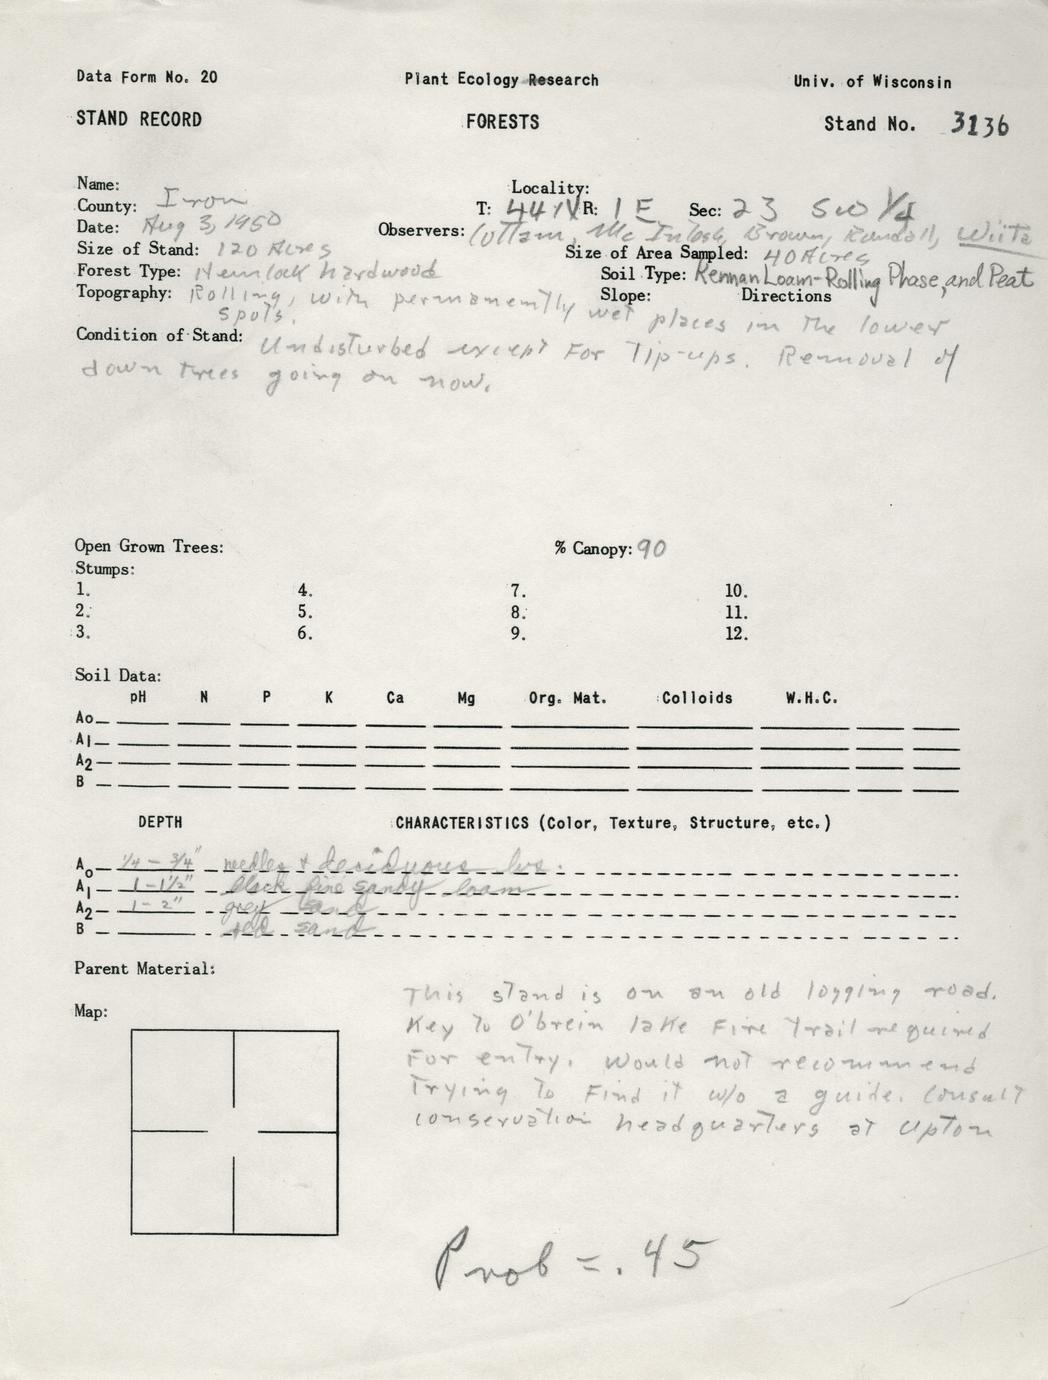 Data Form No. 20 Plant Ecology Research Univ. of Wisconsin
STAND RECORD FORESTS Stand No. 3136
Name: Locality:
County: Iron T: 44N R: 1E Sec: 23 SW 1/4
Date: Aug 3, 1950 Observers: Cottam, McIntosh, Brown, Randall, Wiita
Size of Stand: 120 Acres Size of Area Sampled: 40 Acres
Forest Type: Hemlock hardwood Soil Type: Kennan Loam-Rolling Phase, and Peat
Topography: Rolling, with permanently wet places in the lower Slope: Directions
spots.
Condition of Stand: Undisturbed except For Tip-ups. Removal of
down trees going on now.
Open Grown Trees: % Canopy: 90
Stumps:
1. 4. 7. 10.
2. 5. 8. 11.
3. 6. 9. 12.
Soil Data:
pH N P K Ca Mg Org. Mat. Colloids W.H.C.
Ao
A1
A2
B
DEPTH CHARACTERISTICS (Color, Texture, Structure, etc.)
Ao 1/4 - 3/4" needles + deciduous lvs.
A1 1-1 1/2" black fine sandy loam
A2 1-2" grey sand
B red sand
Parent Material:
Map:
This stand is on an old logging road.
Key to O'brein lake Fire Trail required
For entry. Would not recommend
Trying to Find it w/o a guide. Consult
conservation headquarters at Upton
Prob = .45